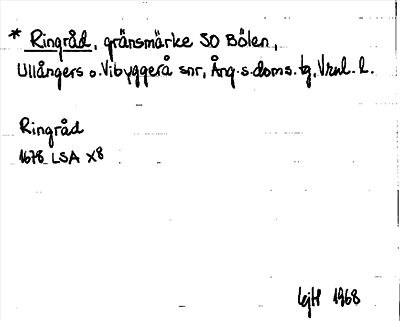 * Ringråd, gränsmärke SO Bölen,
Ullångers o. Vibyggerå snr, Ång. s. doms. tg, Vrnl. l.
Ringråd
1678 LSA X8
1968